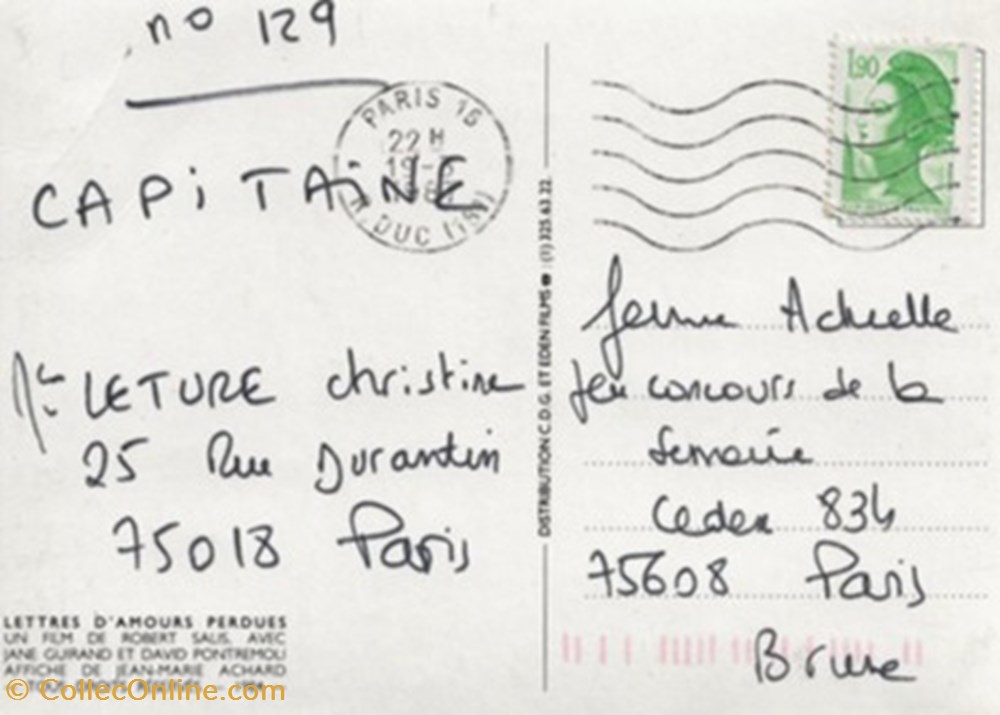 no 129
CAPITAINE
PARIS 16
22 H
19-
R. DUC (18e)
Me LETURE Christine
25 Rue Durantin
75018 Paris
LETTRES D'AMOURS PERDUES
UN FILM DE ROBERT SALIS, AVEC
JANE GUIRAND ET DAVID PONTREMOLI
AFFICHE DE JEAN-MARIE ACHARD
© CollecOnline.com
DISTRIBUTION C.D.G. ET EDEN FILMS ☎ : (1) 325.63.22.
1,90
Femme Actuelle
Jeu concours de la
Semaine
Cedex 834
75608 Paris
Brune